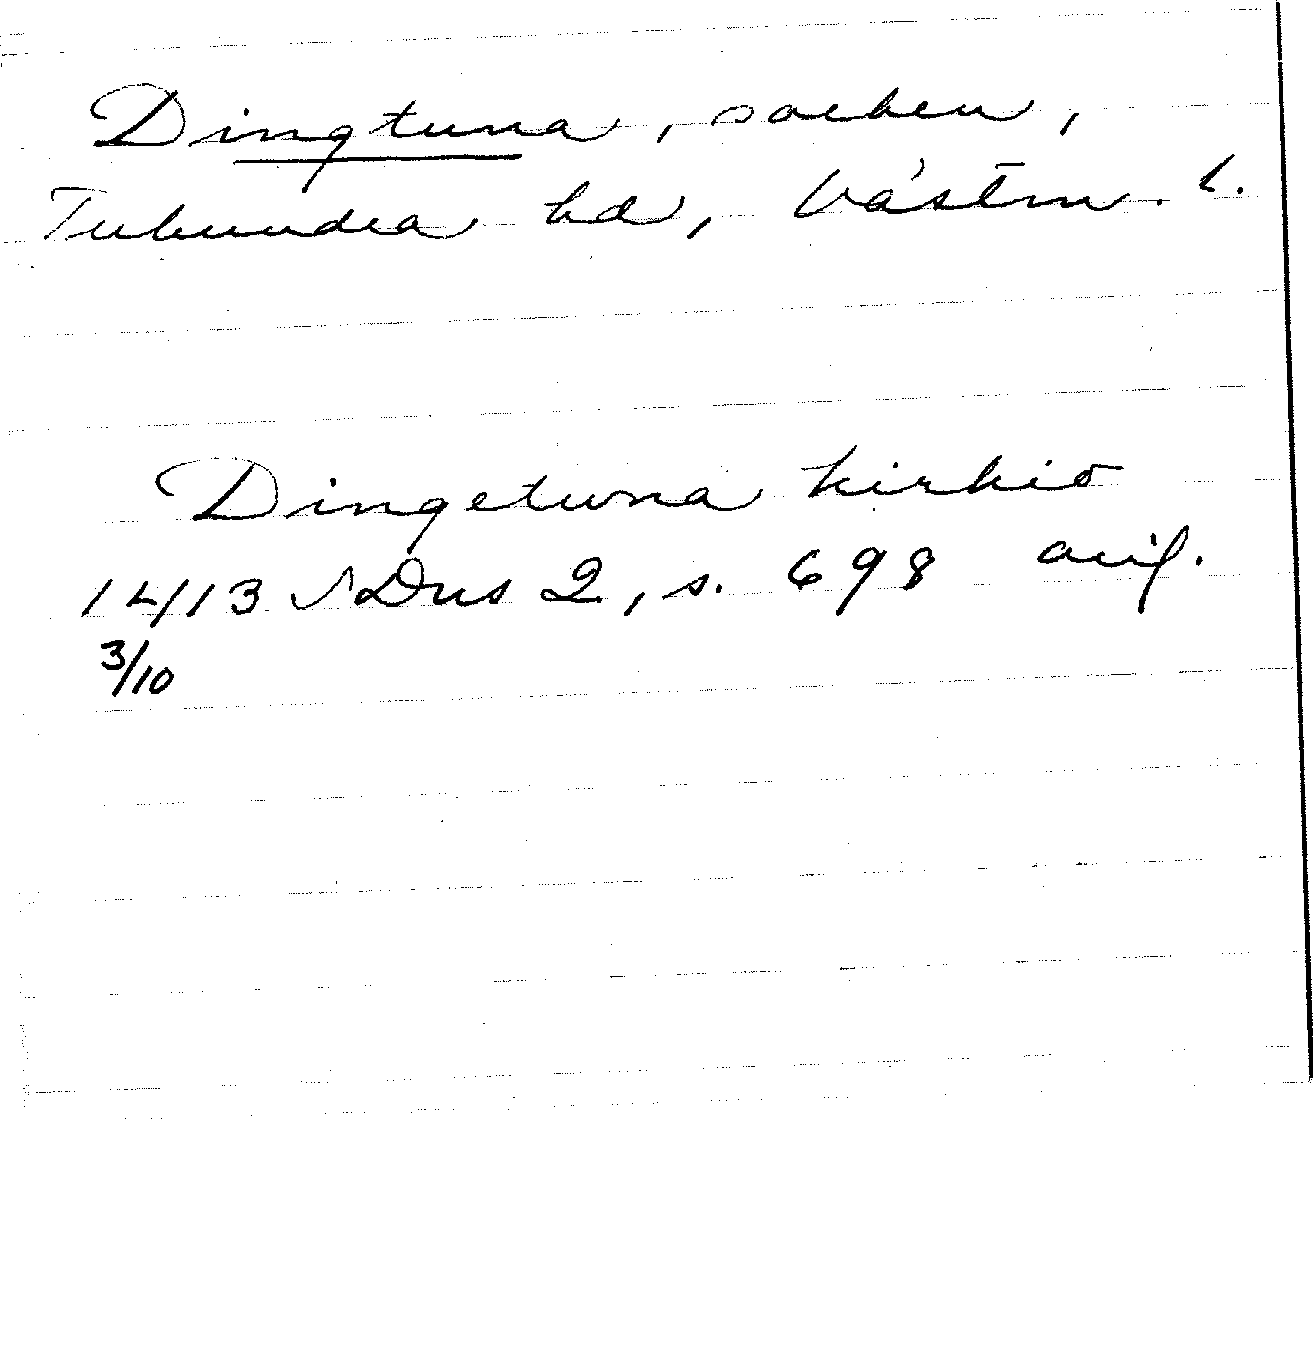 Dingtuna, socken,
Tuhundra hd, Västm. l.
Dingetuna kirkio
1413 SDns 2, s. 698 avsk.
3/10